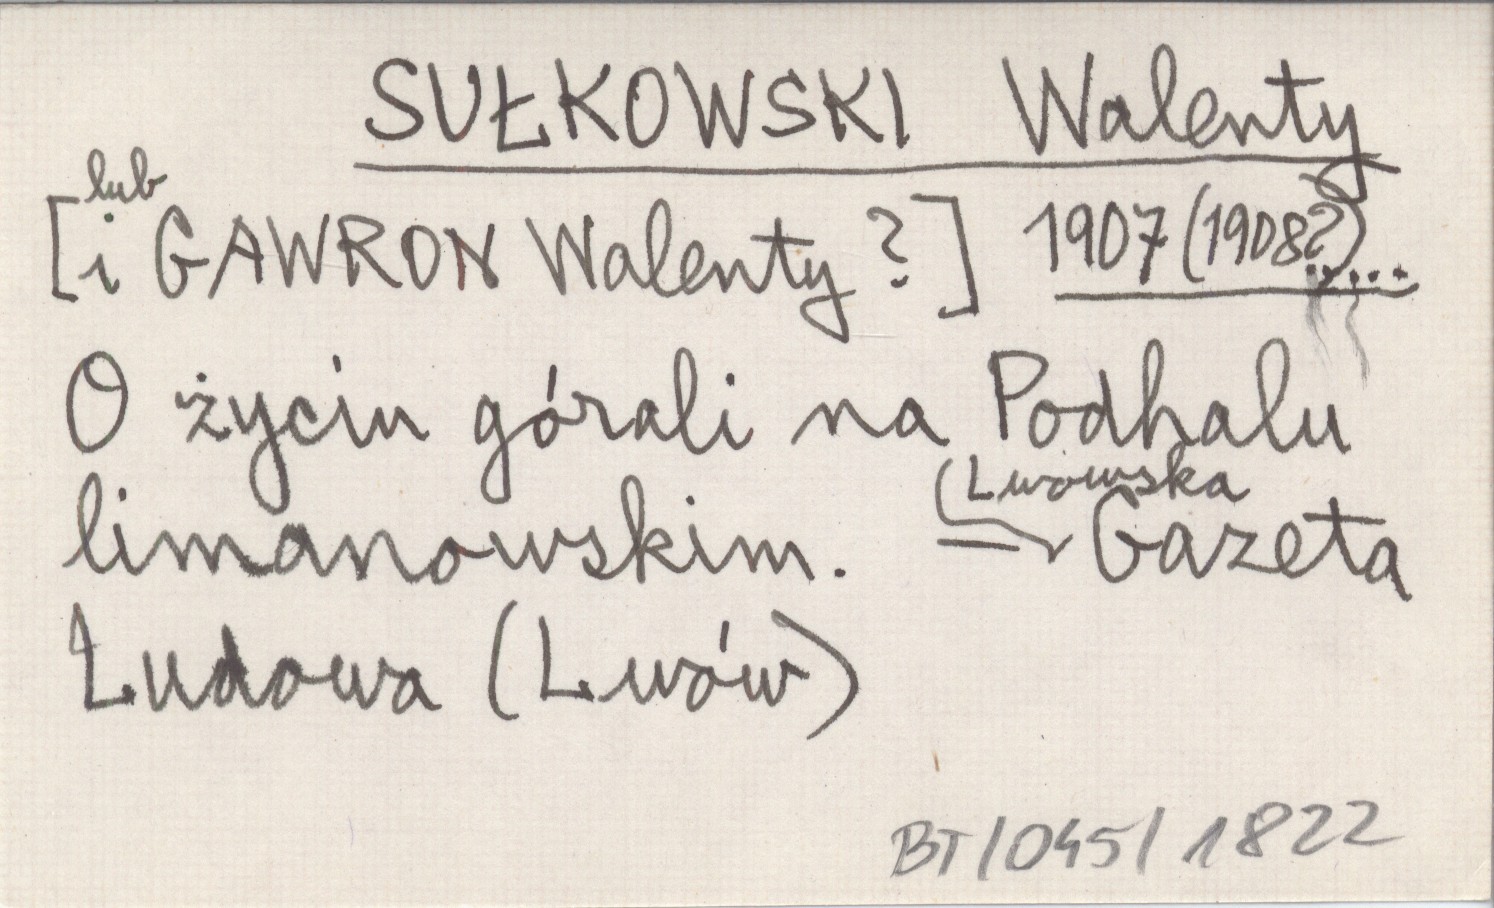 SUŁKOWSKI Walenty
lub
[i GAWRON Walenty ?] 1907 (1908?)...
O życiu górali na Podhalu
(Lwowska
limanowskim. = Gazeta
Ludowa (Lwów)
BT/045/1822